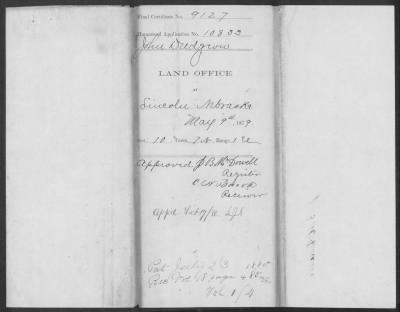 Final Certificate No. 9127
Homestead Application No. 10832
John Dredgrow
LAND OFFICE
at
Lincoln Nebraska
May 9th 1879.
Sec. 10 Town. 7 N Range 1 E
Approved J B McDowell
Register
Receiver
Pat July 23 1880
Rec Vol 18 page
Vol